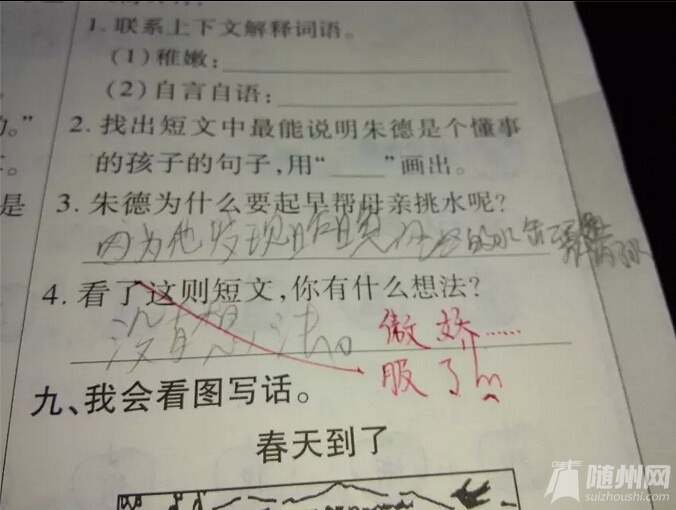 1. 联系上下文解释词语。
(1) 稚嫩:
(2) 自言自语:
2. 找出短文中最能说明朱德是个懂事
的孩子的句子,用“____”画出。
3. 朱德为什么要起早帮母亲挑水呢?
因为他发现
的水缸
4. 看了这则短文,你有什么想法?
没有想法。
傲娇……
服了
九、我会看图写话。
春天到了
的。”
是
随州网
suizhoushi.com